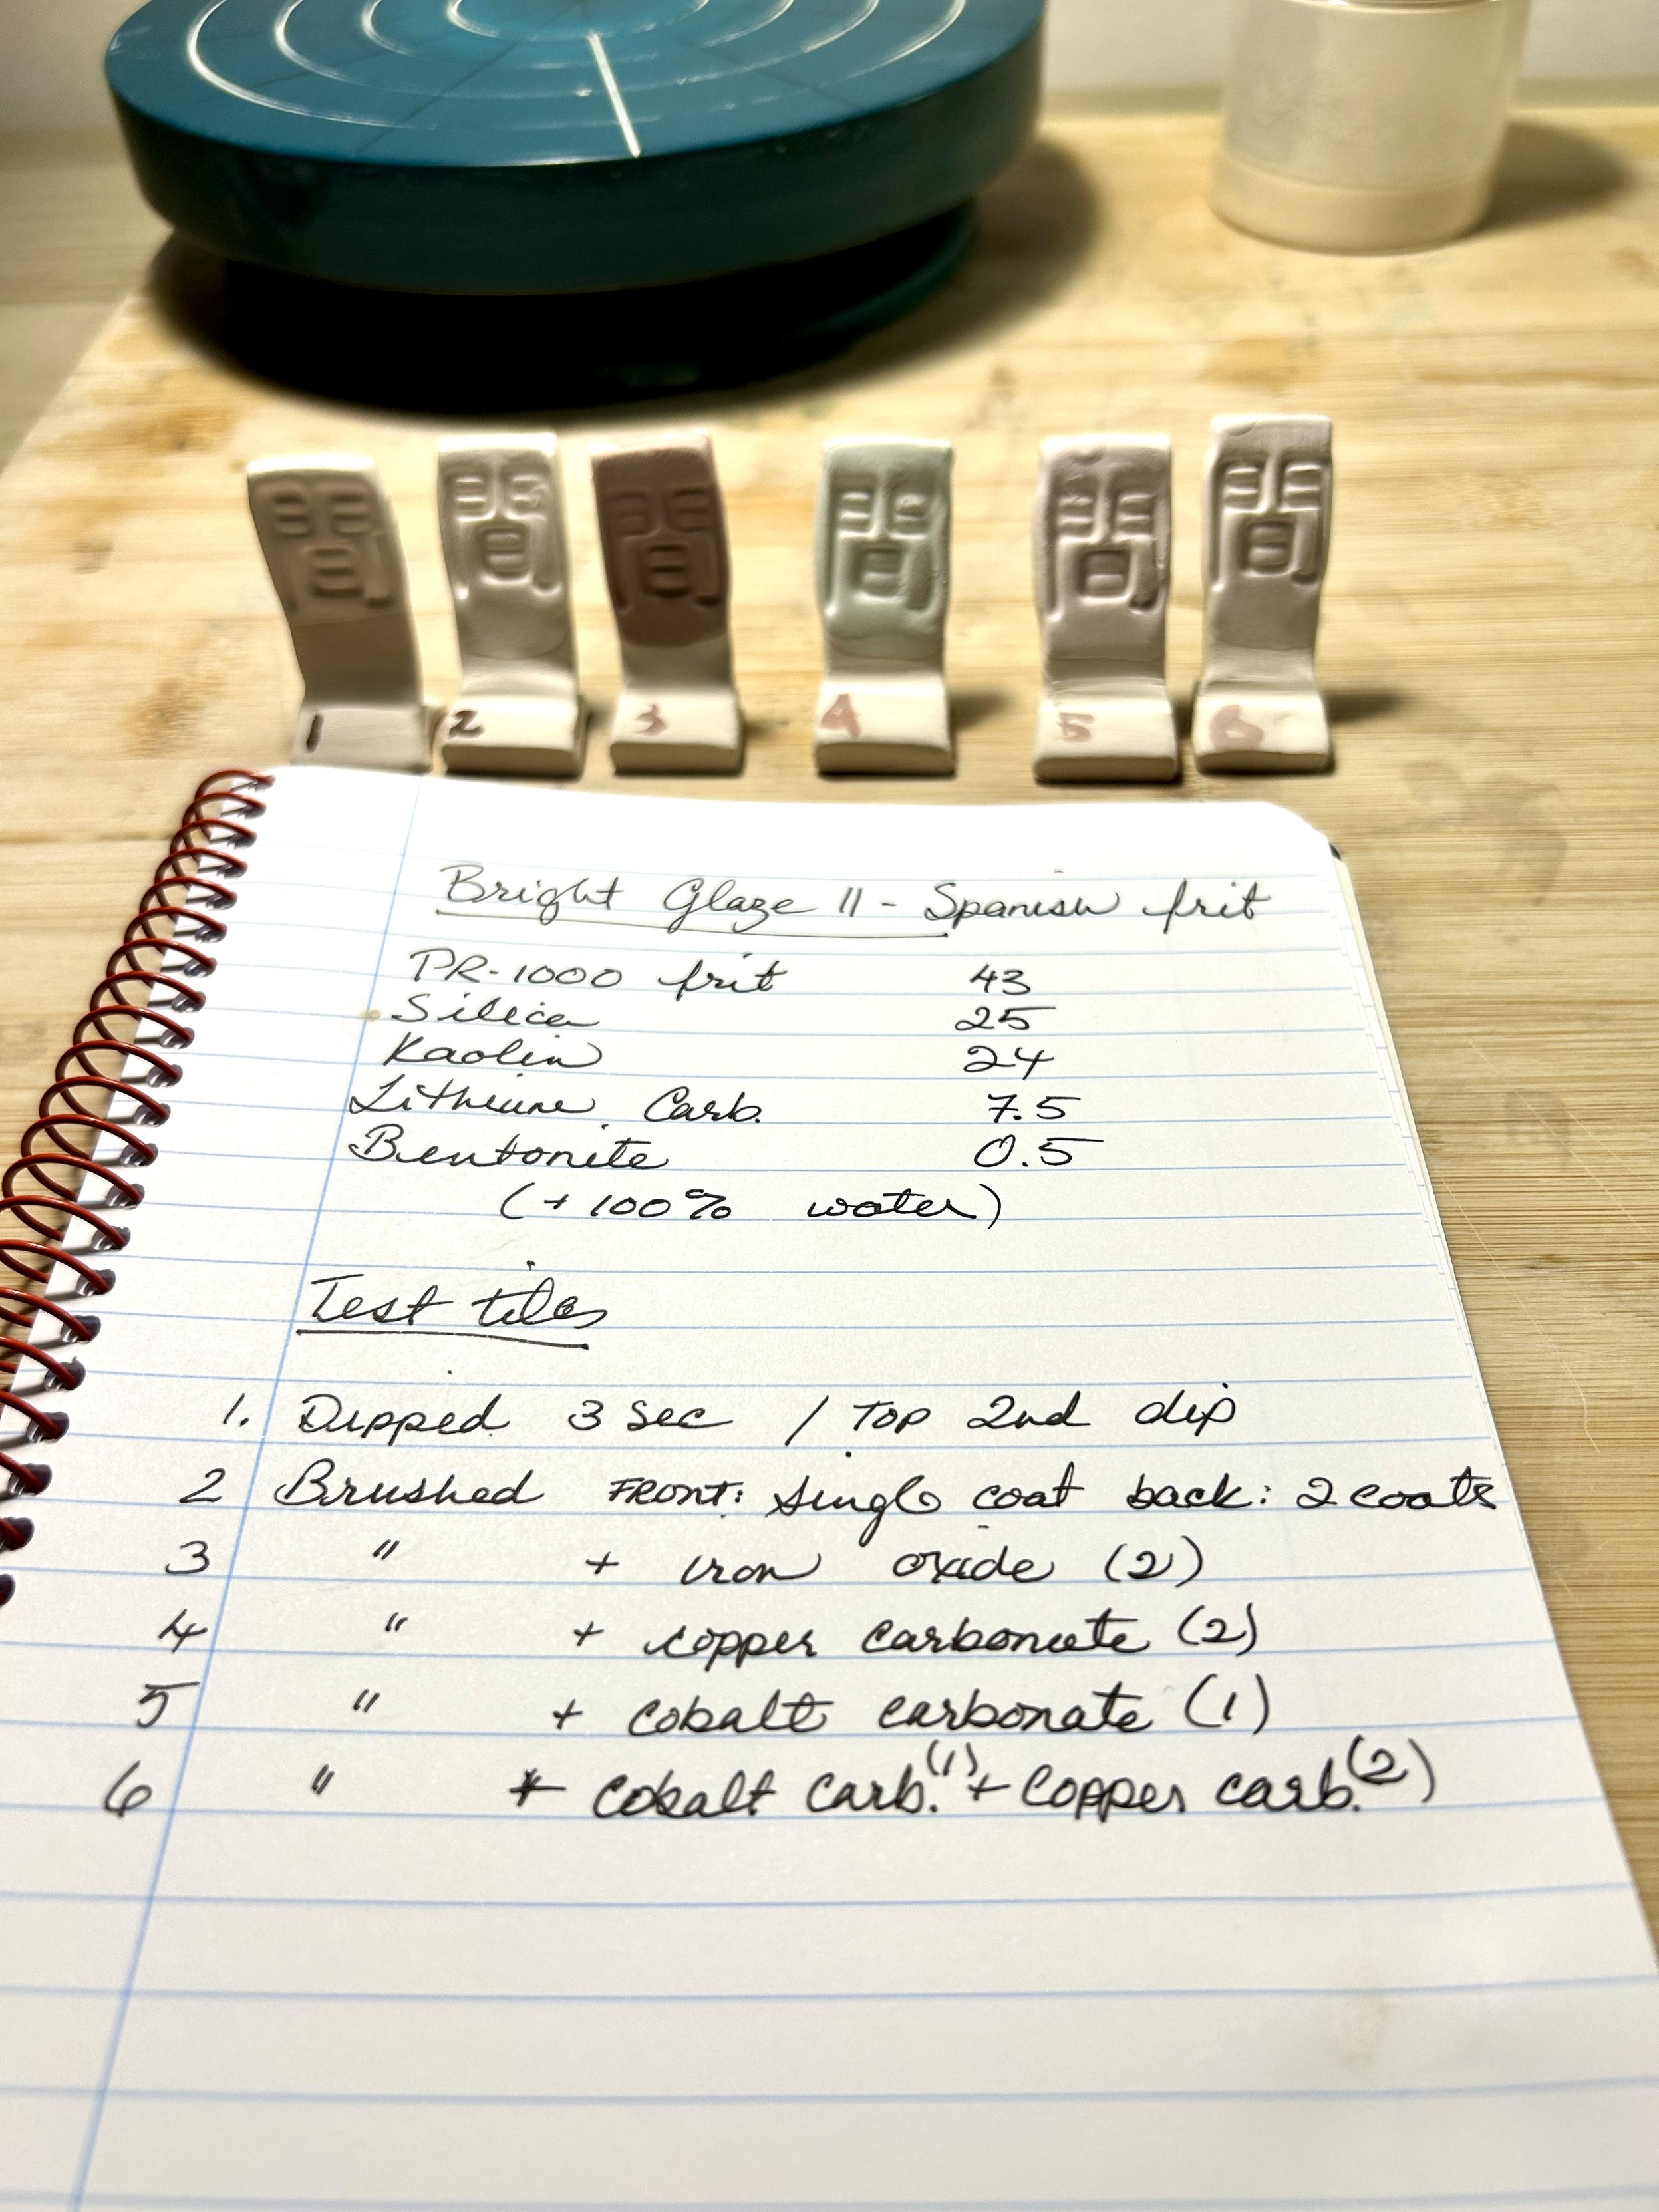 1 2 3 4 5 6
Bright Glaze II - Spanish frit
PR-1000 frit 43
Silica 25
Kaolin 24
Lithium Carb. 7.5
Bentonite 0.5
(+ 100% water)
Test tiles
1. Dipped 3 sec / Top 2nd dip
2 Brushed FRONT: single coat back: 2 coats
3 " + iron oxide (2)
4 " + copper carbonate (2)
5 " + cobalt carbonate (1)
6 " + cobalt carb.(1) + copper carb.(2)